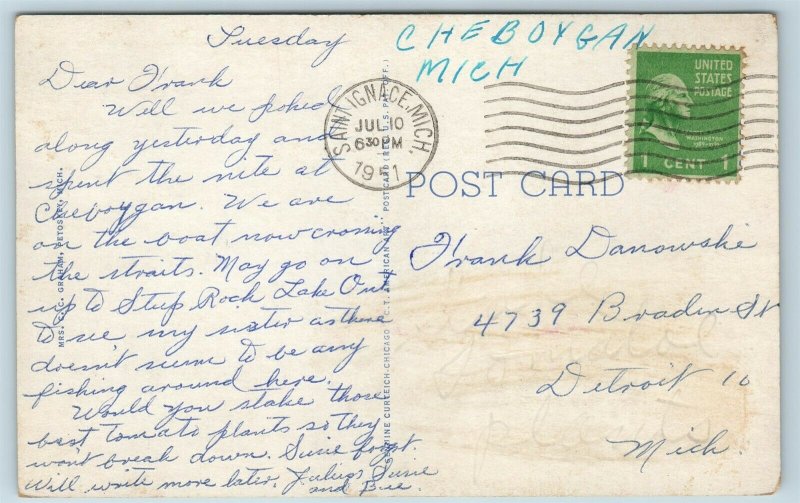 Tuesday
CHEBOYGAN
MICH
Dear Frank
Well we poked
along yesterday and
spent the nite at
Cheboygan. We are
on the boat now crossing
the straits. May go on
up to Steep Rock Lake Ont
to see my sister as there
doesn't seem to be any
fishing around here.
Would you stake those
best tomato plants so they
won't break down. Susie forgot.
Will write more later. Julius Susie
and Bee.
SAINT IGNACE, MICH.
JUL 10
6 30 PM
UNITED
STATES
POSTAGE
WASHINGTON
1789-1797
1 CENT 1
POST CARD
Frank Danowskie
4739 Braden St
Detroit 10
Mich.
MRS. C.C. GRAHAM, PETOSKEY, MICH.
GENUINE CURTEICH-CHICAGO "C.T. AMERICAN ART" POST CARD (REG. U.S. PAT. OFF.)